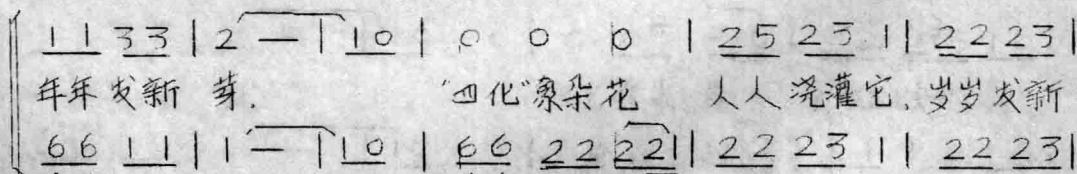 1 1 3 3 | 2 — | 1 0 | 0 0 0 | 2 5 2 3 1 | 2 2 2 3 |
年年发新芽. "四化"象朵花 人人浇灌它, 岁岁发新
6 6 1 1 | 1 — | 1 0 | 6 6 2 2 2 2 1 | 2 2 2 3 1 | 2 2 2 3 |